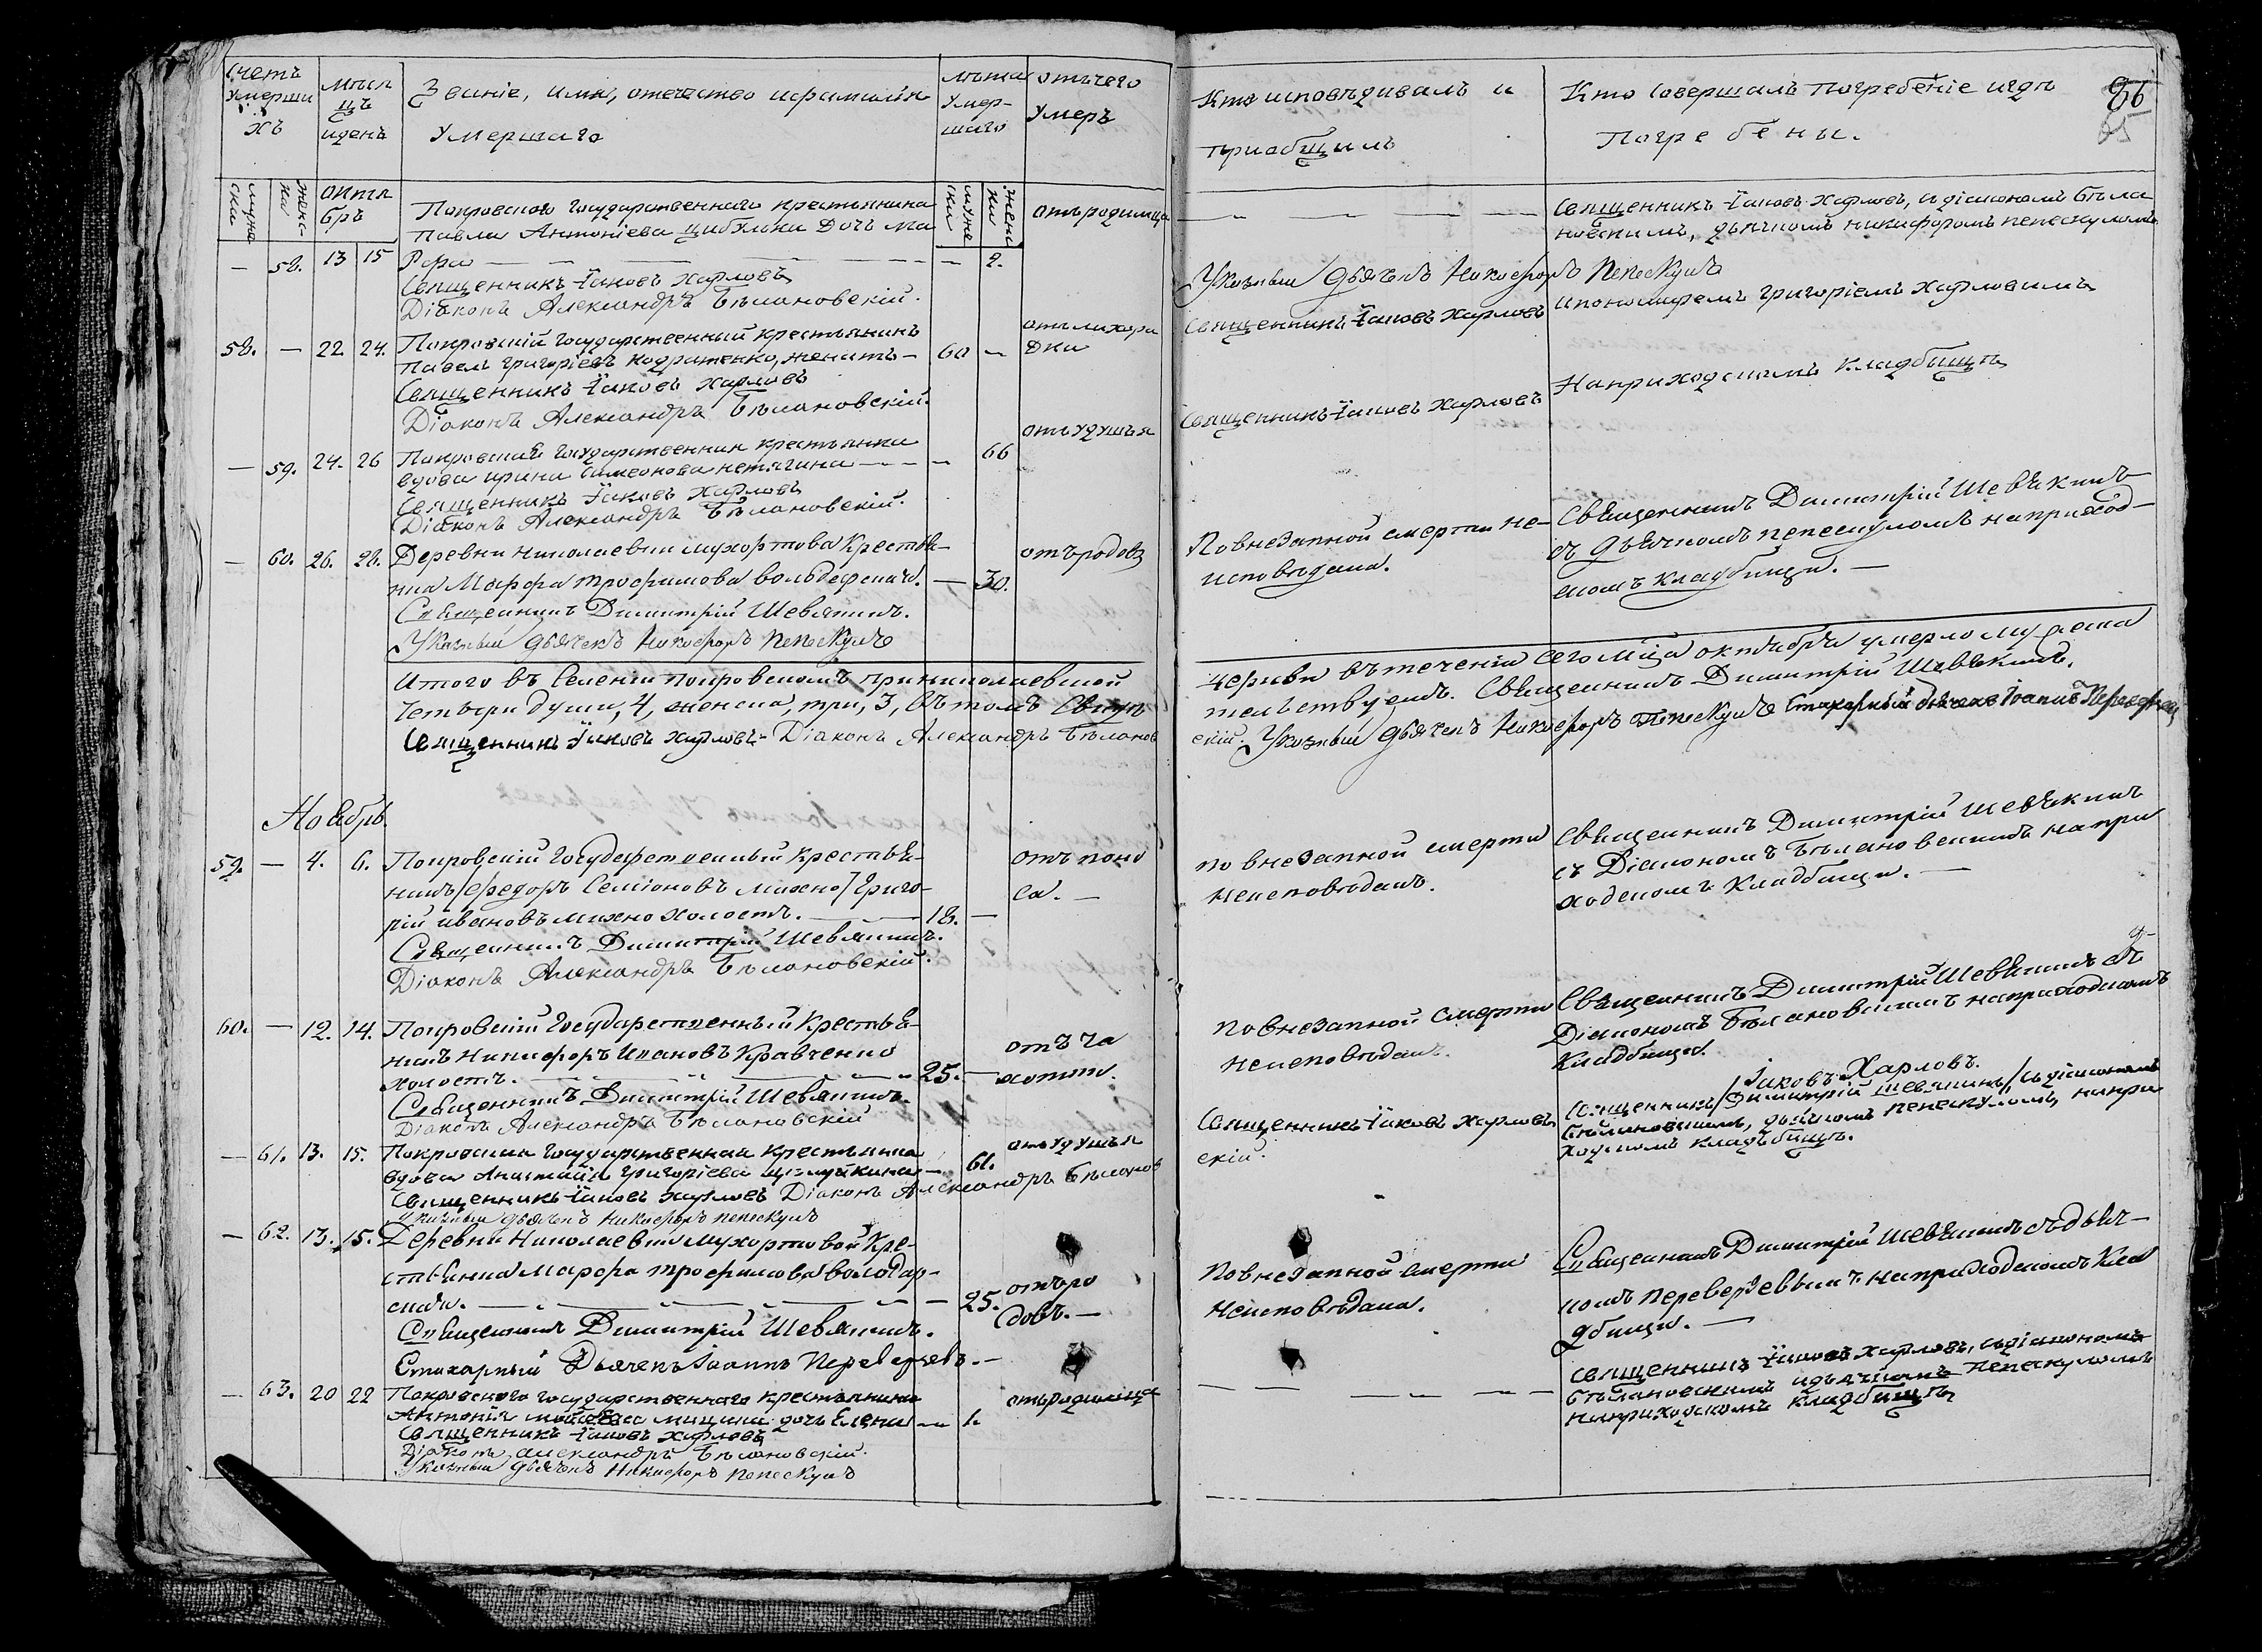 Счетъ
Умерши
хъ
Мѣся
цъ
и день
Званіе, имя, отечество и фамилія
Умершаго
лѣта
Умер-
шаго
отъ чего
Умеръ
муже
ска
женс
ка
октя
бръ
муже
ска
женс
ка
Покровского Государственнаго крестьянина
Павла Антоніева Цибульки Дочь Ма
отъ родимца
— 58. 13 15 Рфа — — — 2.
Священникъ Іаковъ Харловъ
Діаконъ Александръ Бѣлановскій.
58. — 22 24. Покровскій Государственный Крестьянинъ
Павелъ Григоріевъ Кодратенко, женитъ — 60 —
отъ лихора
дки
Священникъ Іаковъ Харловъ
Діаконъ Александръ Бѣлановскій.
— 59. 24. 26 Покровская Государственная крестьянка
вдова Ирина Симеонова — — — 66
отъ удушья
Священникъ Іаковъ Харловъ
Діаконъ Александръ Бѣлановскій.
— 60. 26. 28. Деревни Николаевки Мухортова Крестья-
нка Марфа Трофимова — 30.
отъ родовъ
Священникъ Димитрій Шевякинъ.
Указный дьячекъ Никифоръ Пепескулъ
Итого въ Селеніи Покровскомъ при Николаевской
четыри души, 4, женска, три, 3, въ томъ Свидѣ
Священникъ Іаковъ Харловъ. Діаконъ Александръ Бѣланов
Ноябрь.
59. — 4. 6. Покровскій Государственный Крестья-
нинъ /Федоръ Семіоновъ Михно/ Григо-
рій Ивановъ Михно холостъ. — 18. —
отъ поно
са. —
Священникъ Димитрій Шевякинъ.
Діаконъ Александръ Бѣлановскій.
60. — 12. 14. Покровскій Государственный Крестья-
нинъ Никифоръ Ивановъ Кравченко
холостъ. — 25. —
отъ ча
хотки.
Священникъ Димитрій Шевякинъ.
Діаконъ Александръ Бѣлановскій
— 61. 13. 15. Покровская Государственная Крестьянка
вдова Анастасія Григоріева — 61.
отъ удушья
Священникъ Іаковъ Харловъ Діаконъ Александръ Бѣланов
Указный дьячекъ Никифоръ Пепескулъ
— 62. 13. 15. Деревни Николаевки Мухортовой Кре-
стьянка Марфа Трофимова Володар-
ская. — 25.
отъ ро
довъ. —
Священникъ Димитрій Шевякинъ.
Стихарный Дьячекъ Іоаннъ Переверзевъ. —
— 63. 20 22 Покровского Государственнаго крестьянина
Антонія дочь Елена — 1.
отъ родимца
Священникъ Іаковъ Харловъ
Діаконъ Александръ Бѣлановскій.
Указный дьячекъ Никифоръ Пепескулъ
Кто исповѣдивалъ и
пріобщилъ
Кто Совершалъ Погребеніе и гдѣ
Погребены.
66
Священникъ Іаковъ Харловъ, съ діакономъ Бѣла
новскимъ, дьячкомъ Никифоромъ Пепескуломъ
Указный дьячекъ Никифоръ Пепескулъ
и пономаремъ Григоріемъ Харловимъ
Священникъ Іаковъ Харловъ
На приходскомъ Кладбищѣ
Священникъ Іаковъ Харловъ
По внезапной смерти не-
исповѣдана.
Священникъ Димитрій Шевякинъ
съ дьячкомъ Пепескуломъ на приход-
скомъ кладбищи. —
церкви въ теченіи сего мѣсяца октября умерло мужеска
тельствуемъ. Священникъ Димитрій Шевякинъ.
скій. Указный дьячекъ Никифоръ Пепескулъ Стихарный дьячекъ Іоаннъ Переверзев
по внезапной смерти
неисповѣданъ.
Священникъ Димитрій Шевякинъ
съ Діакономъ Бѣлановскимъ на при
ходскомъ Кладбищи. —
по внезапной смерти
неисповѣданъ.
Священникъ Димитрій Шевякинъ съ
Діакономъ Бѣлановскимъ на приходскомъ
Кладбищи.
Іаковъ Харловъ.
Священникъ Іаковъ Харловъ
скій.
Священникъ /Димитрій Шевякинъ/ съ діакономъ
Бѣлановскимъ, дьячкомъ Пепескуломъ, на при
ходскомъ кладъбищѣ.
По внезапной смерти
неисповѣдана.
Священникъ Димитрій Шевякинъ съ дьяч-
комъ Переверзевымъ на приходскомъ Кла
дбищи. —
Священникъ Іаковъ Харловъ, съ діакономъ
Бѣлановскимъ и дьячкомъ Пепескуломъ
на приходскомъ кладбищѣ